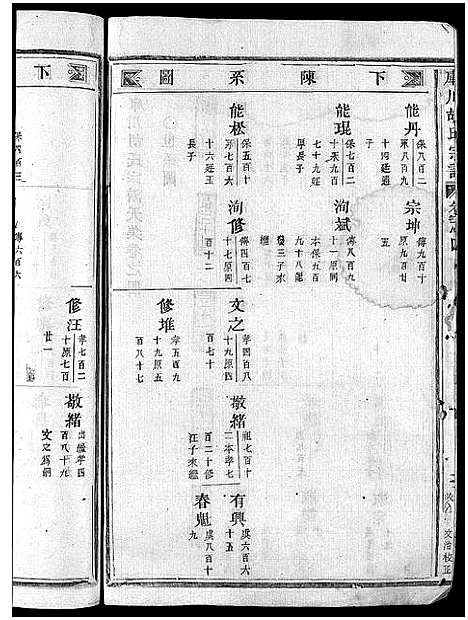 下陳系圖
能丹
保八百二
承八百九
十四廷通
子
宗坤
傳九百十
五
能琨
保七百二
十承九百
七十九廷
洵斌
傳八百九
十一原同
本保五百
九十八龍
發三子來
繼
能松
保五百十
承七百六
十六廷玉
長子
洵修
傳四百七
十七原四
百十二
文之
孝四百八
十九原四
百七十
敬緒
祖七百十
二本孝七
百二十修
汪子來繼
有興
虞六百六
十五
春魁
虞八百十
九
修堆
孝五百九
十九原五
百八十七
下
修汪
孝七百二
十原七百
廿一
敬緒
出繼孝四
百八十九
文之爲嗣